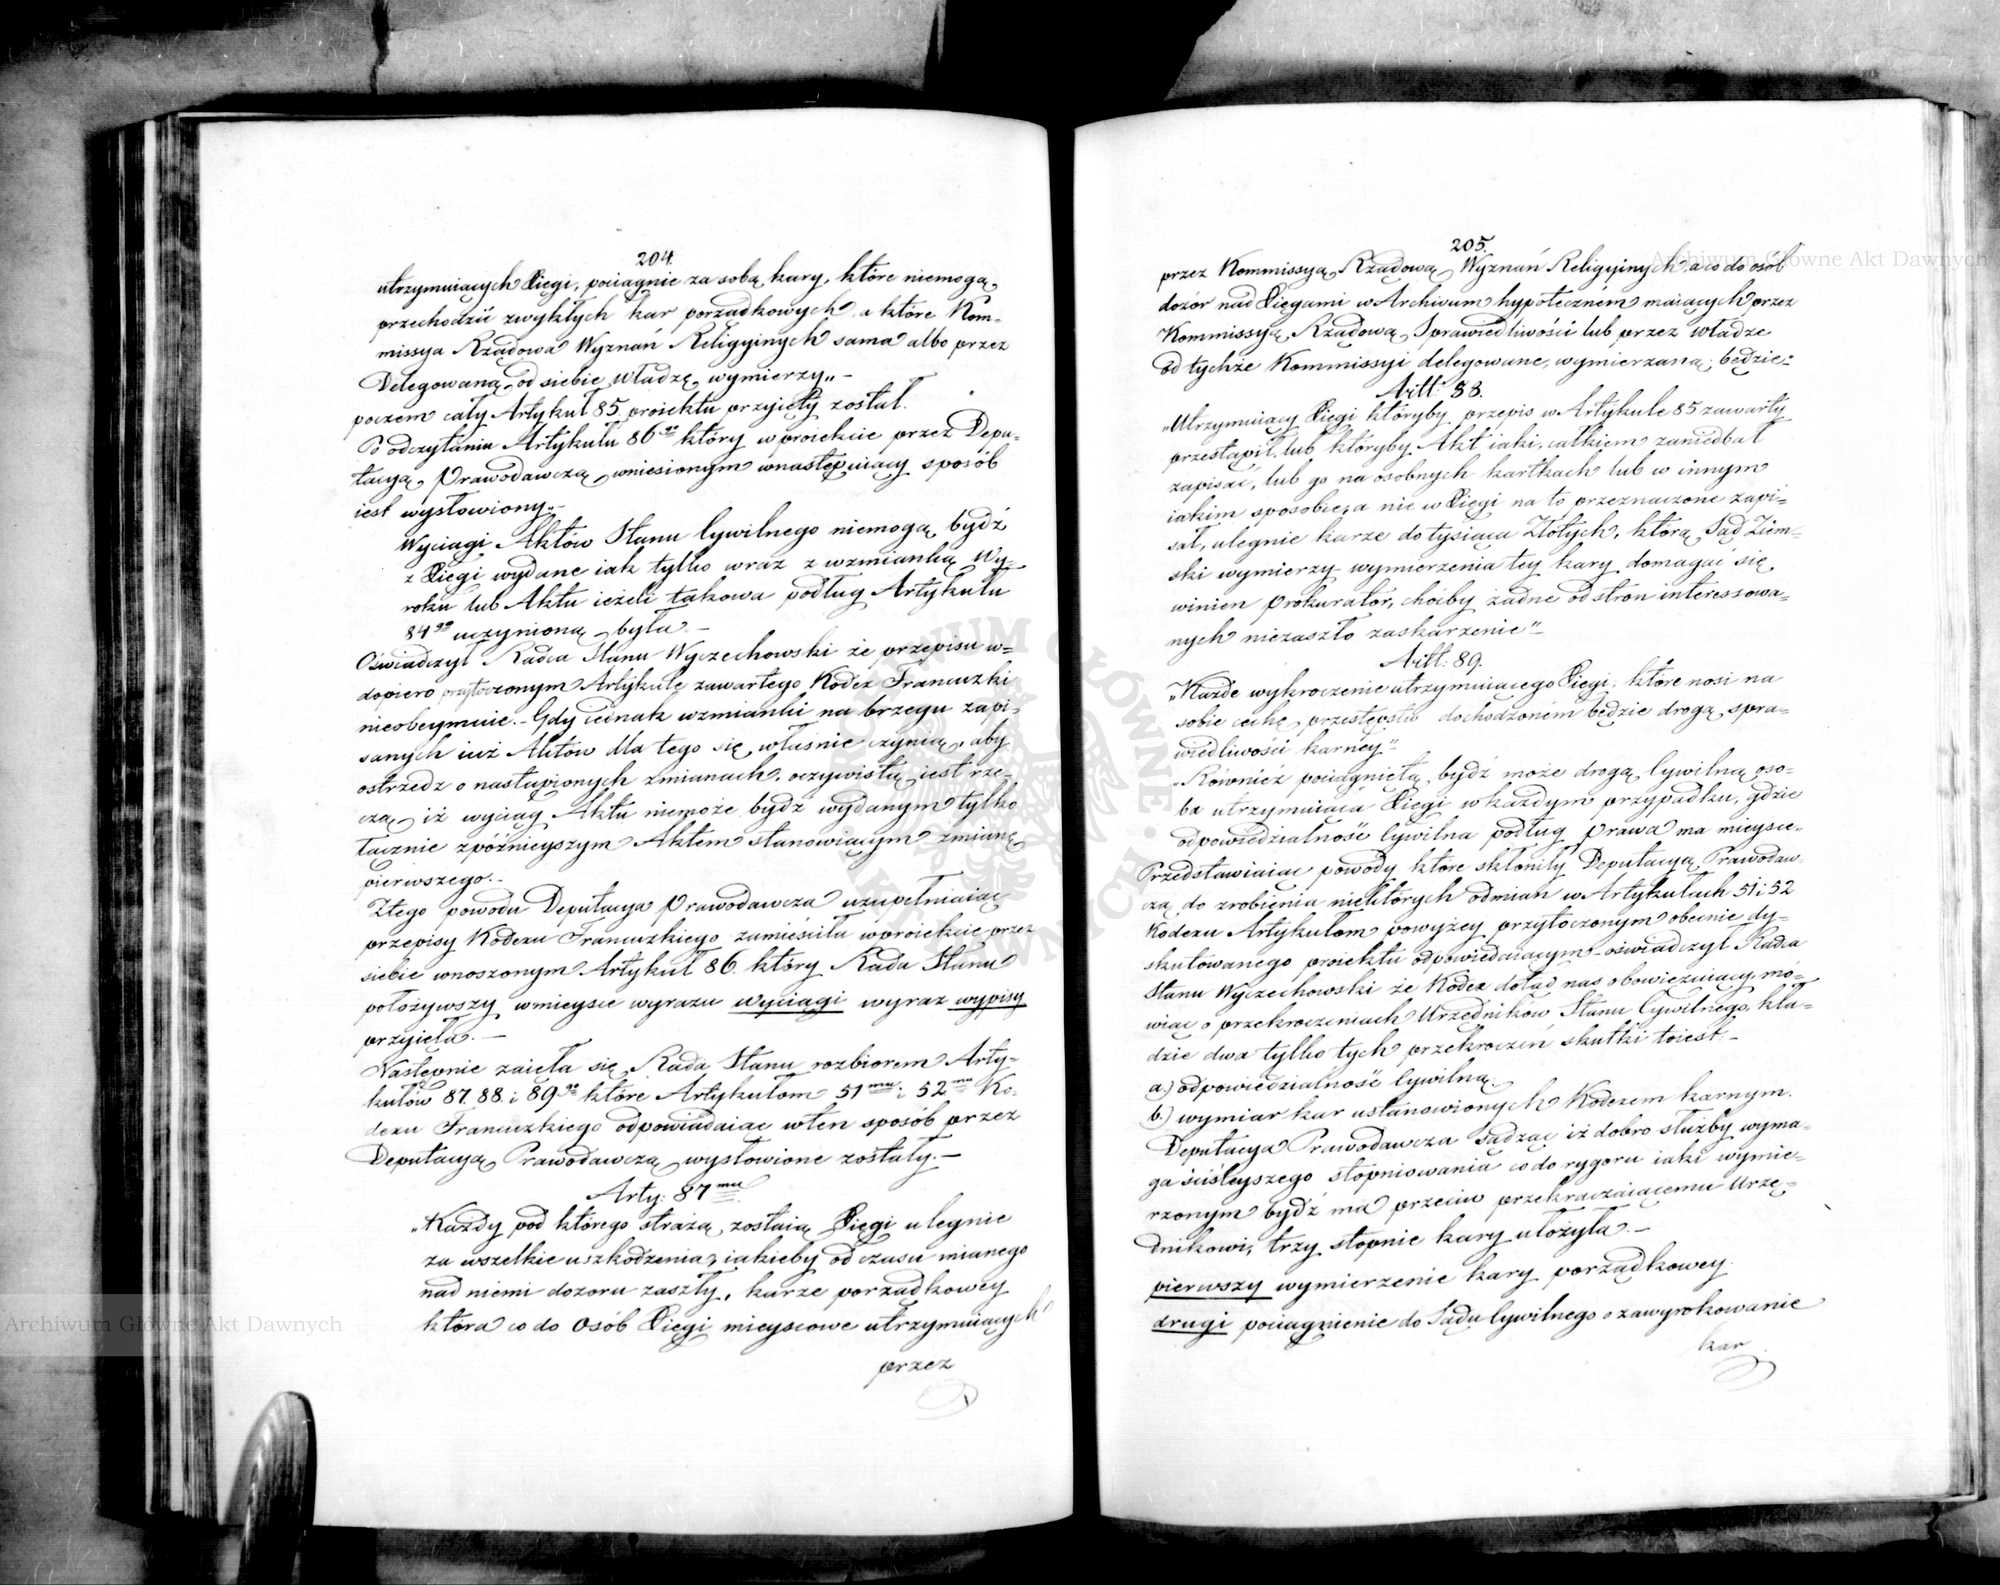 204.
utrzymuiących Xięgi, pociągnie za sobą kary, które niemogą
przechodzić zwykłych kar porządkowych a które Kom-
missya Rządowa Wyznań Religyinych sama albo przez
Delegowaną od siebie Władzę wymierzy„ –
poczem cały Artykuł 85. proiektu przyięty został.
Po odczytaniu Artykułu 86go który w proiekcie przez Depu-
tacyą Prawodawczą wniesionym w następuiący sposób
iest wysłowiony„–
Wyciągi Aktów Stanu Cywilnego niemogą bydź
z Xięgi wydane iak tylko wraz z wzmianką Wy-
roku lub Aktu ieżeli takowa podług Artykułu
84go uczynioną była. –
Oświadczył Radca Stanu Wyczechowski że przepisu w-
dopiero przytoczonym Artykule zawartego Kodex Francuzki
nieobeymuie. – Gdy iednak wzmianki na brzegu zapi-
sanych iuż Aktów dla tego się właśnie czynią, aby
ostrzedz o nastąpionych zmianach, oczywistą iest rze-
czą iż wyciąg Aktu niemoże bydź wydanym tylko
łącznie z późnieyszym Aktem stanowiącym zmianę
pierwszego. –
Z tego powodu Deputacya Prawodawcza uzupełniaiąc
przepisy Kodexu Francuzkiego zamieściła w proiekcie przez
siebie wnoszonym Artykuł 86. który Rada Stanu
położywszy w mieysce wyrazu wyciągi wyraz wypisy
przyięła. –
Następnie zaięła się Rada Stanu rozbiorem Arty-
kułów 87. 88. i 89go które Artykułom 51mu i 52mu Ko-
dexu Francuzkiego odpowiadaiąc w ten sposób przez
Deputacyą Prawodawczą wysłowione zostały. –
Arty: 87mu
„Każdy pod którego strażą zostaią Xięgi ulegnie
za wszelkie uszkodzenia, iakieby od czasu mianego
nad niemi dozoru zaszły, karze porządkowey
która co do Osób Xięgi mieyscowe utrzymuiących
przez
205.
przez Kommissyą Rządową Wyznań Religyinych, a co do osób
dozór nad Xięgami w Archiwum hypoteczném maiących przez
Kommissyą Rządową Sprawiedliwości lub przez władze
od tychże Kommissyi delegowane, wymierzaną będzie„
Artt: 88.
„Utrzymuiący Xięgi któryby przepis w Artykule 85 zawarty
przestąpił, lub któryby Akt iaki całkiem zaniedbał
zapisać, lub go na osobnych kartkach lub w innym
iakim sposobie, a nie w Xięgi na to przeznaczone zapi-
sał, ulegnie karze do tysiąca Złotych, którą Sąd Ziem-
ski wymierzy wymierzenia tey kary domagać się
winien Prokurator, choćby żadne od stron interessowa-
nych niezaszło zaskarzenie” –
Artt: 89.
„Każde wykroczenie utrzymuiącego Xięgi, które nosi na
sobie cechę przestępstw dochodzoném będzie drogą spra-
wiedliwości karney” –
„Również pociągniętą bydź może drogą Cywilną oso-
ba utrzymuiąca Xięgi w każdym przypadku, gdzie
odpowiedzialność Cywilna podług prawa ma mieysce„
Przedstawiaiąc powody które skłoniły Deputacyą Prawodaw-
czą do zrobienia niektórych odmian w Artykułach 51 i 52
Kodexu Artykułom powyżey przytoczonym obecnie dy-
skutowanego proiektu odpowiedaiącym – oświadczył Radca
Stanu Wyczechowski że Kodex dotąd nas obowiązuiący, mó-
wiąc o przekroczeniach Urzędników Stanu Cywilnego, kła-
dzie dwa tylko tych przekroczeń skutki to iest. –
a.) odpowiedzialność Cywilną.
b.) wymiar kar ustanowionych Kodexem karnym.
Deputacya Prawodawcza sądząc iż dobro służby wyma-
ga ściśleyszego stopniowania co do rygoru iaki wymie-
rzonym bydź ma przeciw przekraczaiącemu Urzę-
dnikowi, trzy stopnie kary ułożyła. –
pierwszy wymierzenie kary porządkowey
drugi pociągnienie do Sądu Cywilnego o zawyrokowanie
kar
Archiwum Główne Akt Dawnych
Archiwum Główne Akt Dawnych
ARCHIWUM GŁÓWNE AKT DAWNYCH